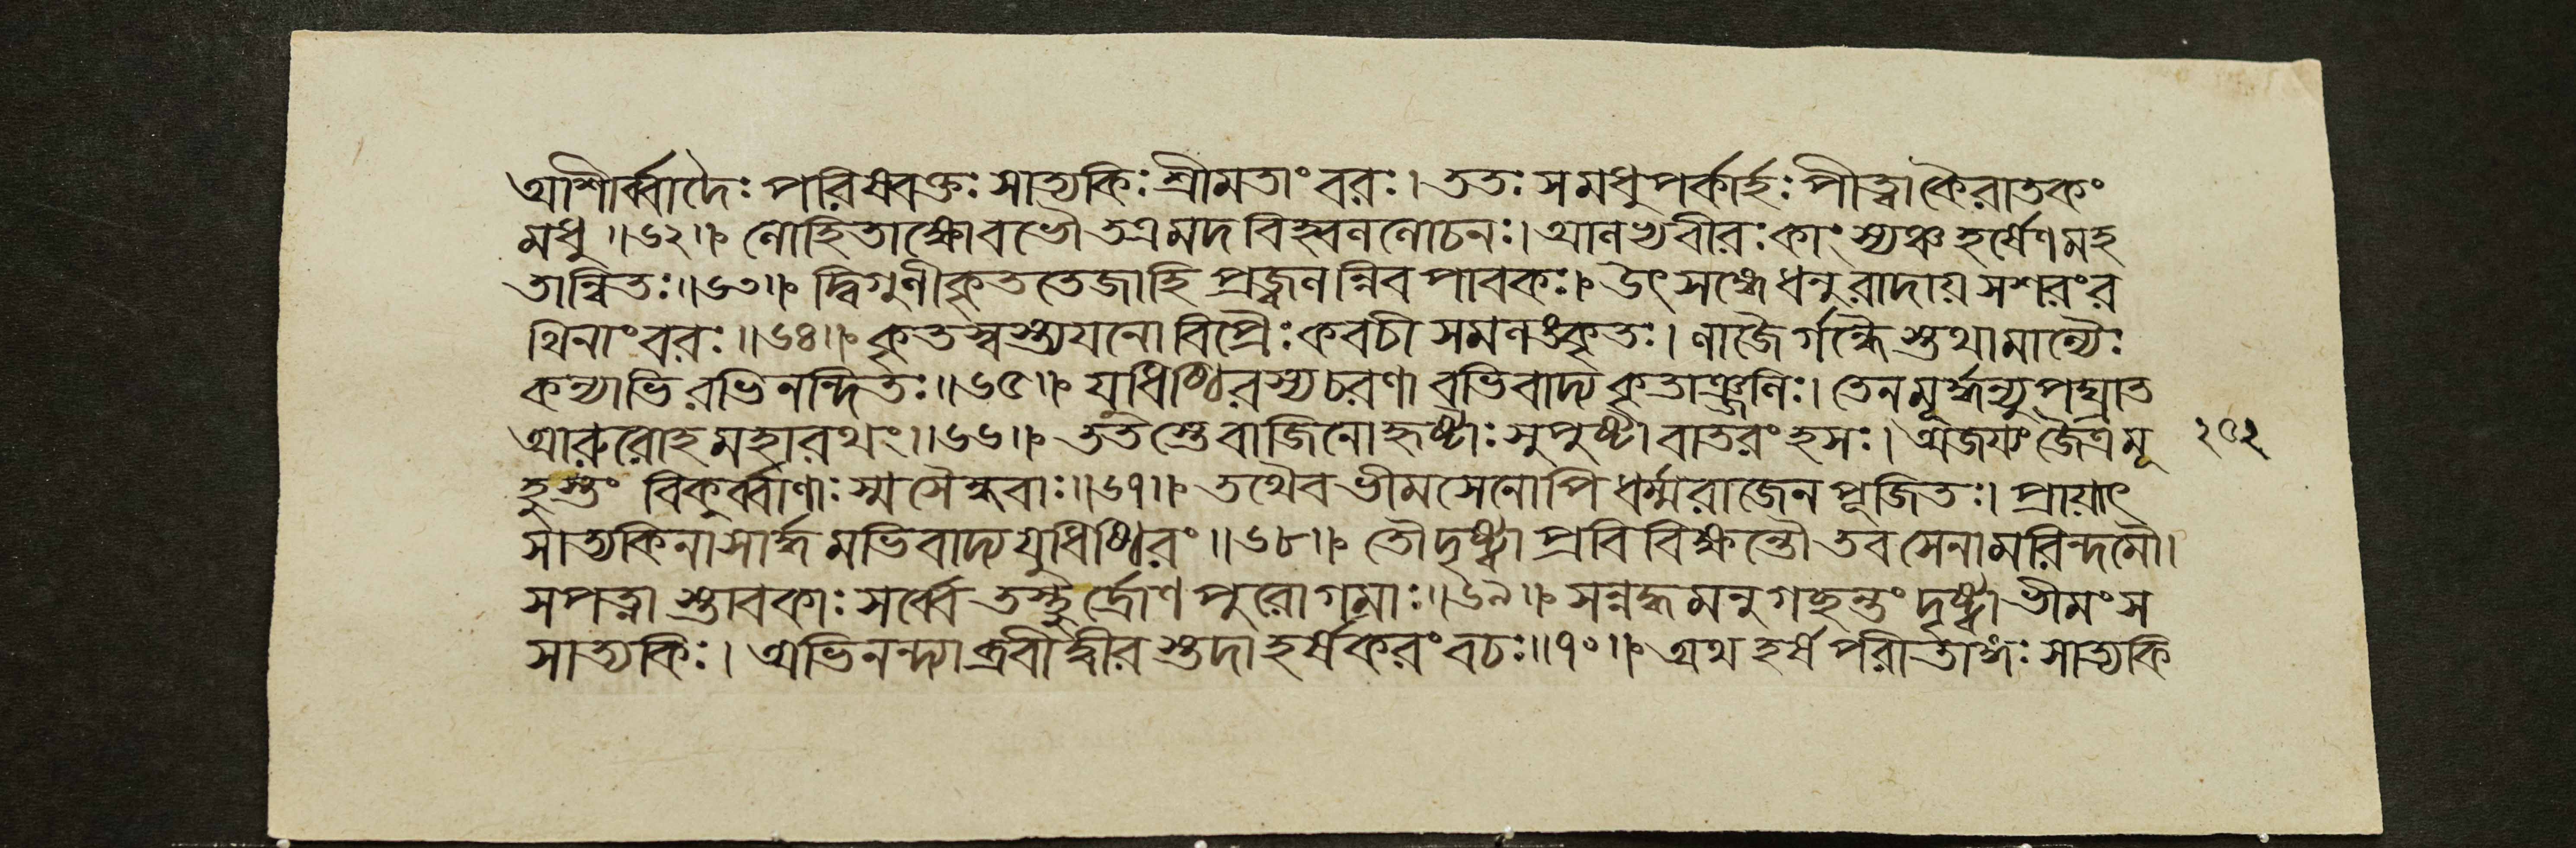 আশীর্ব্বাদৈঃ পরিষ্বক্তঃ সাত্যকিঃ শ্রীমতাং বরঃ। ততঃ সমধুপর্কার্হঃ পীত্বা কৈরাতকং
মধু ॥৬২॥ লোহিতাক্ষো বভৌ তত্র মদবিহ্বললোচনঃ। আলভ্য বীরঃ কাংস্যঞ্চ হর্ষেণ মহ
তান্বিতঃ॥৬৩॥ দ্বিগুণীকৃততেজা হি প্রজ্বলন্নিব পাবকঃ। উৎসঙ্গে ধনুরাদায় সশরং র
থিনাং বরঃ ॥৬৪॥ কৃতস্বস্ত্যয়নো বিপ্রৈঃ কবচী সমলঙ্কৃতঃ। লাজৈর্গন্ধৈস্তথা মাল্যৈঃ
কন্যাভিরভিনন্দিতঃ॥৬৫॥ যুধিষ্ঠিরস্য চরণাবভিবাদ্য কৃতাঞ্জলিঃ। তেন মূর্দ্ধন্যুপঘ্রাত
আরুরোহ মহারথং॥৬৬॥ ততস্তে বাজিনো হৃষ্টাঃ সুপুষ্টা বাতরংহসঃ। অজয্যং জৈত্রমূ ২৫২
হুস্তং বিকুর্ব্বাণাঃ স্ম সৈন্ধবাঃ॥৬৭॥ তথৈব ভীমসেনোপি ধর্ম্মরাজেন পূজিতঃ। প্রায়াৎ
সাত্যকিনা সার্দ্ধমভিবাদ্য যুধিষ্ঠিরং ॥৬৮॥ তৌ দৃষ্ট্বা প্রবিবিক্ষন্তৌ তব সেনামরিন্দমৌ।
সপত্না স্তাবকাঃ সর্ব্বে তস্থুর্দ্রোণপুরোগমাঃ॥৬৯॥ সন্নদ্ধমনুগচ্ছন্তং দৃষ্ট্বা ভীমং স
সাত্যকিঃ। অভিনন্দ্যাব্রবীদ্বীরস্তদা হর্ষকরং বচঃ॥৭০॥ অথ হর্ষপরীতাঙ্গঃ সাত্যকি